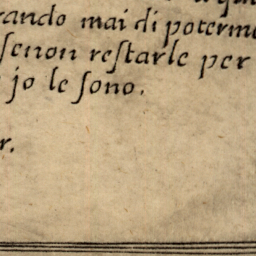 rando mai di poterm
senon restarle per
jo le sono.
r.